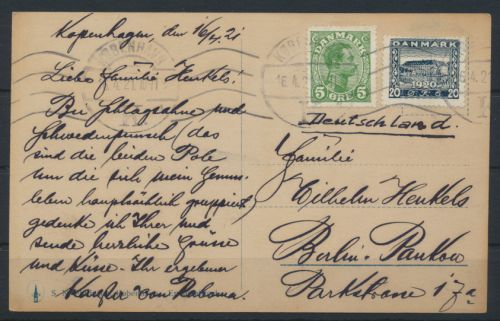 Kopenhagen, den 16/4. 21
Liebe Familie Henkels!
Bei Schlagsahne und
Schwedenpunsch, das
sind die beiden Pole
um die sich mein Genuss-
leben hauptsächlich gruppiert,
gedenke ich Ihrer und
sende herzliche Grüsse
und Küsse. Ihr ergebener
Kaufer von
DANMARK
5 ØRE 5
DANMARK
1920
20 20
KØBENHAVN
Deutschland.
Familie
Wilhelm Henkels
Berlin-Pankow
Parkstrasse 17a